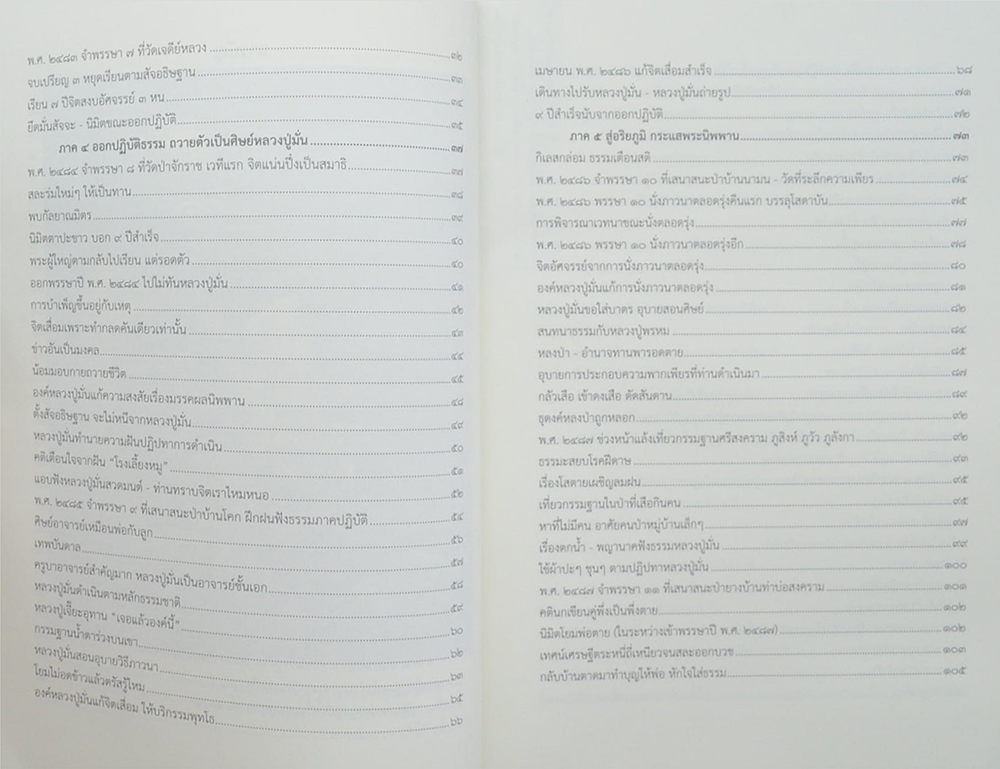 พ.ศ. ๒๔๘๓ จำพรรษา ๗ ที่วัดเจดีย์หลวง ๓๒
จบเปรียญ ๓ หยุดเรียนตามสัจอธิษฐาน ๓๓
เรียน ๗ ปีจิตสงบอัศจรรย์ ๓ หน ๓๔
ยึดมั่นสัจจะ - นิมิตขณะออกปฏิบัติ ๓๕
ภาค ๔ ออกปฏิบัติธรรม ถวายตัวเป็นศิษย์หลวงปู่มั่น ๓๗
พ.ศ. ๒๔๘๔ จำพรรษา ๘ ที่วัดป่าจักราช เวทีแรก จิตแน่นปึ๋งเป็นสมาธิ ๓๗
สละร่มใหม่ๆ ให้เป็นทาน ๓๘
พบกัลยาณมิตร ๓๙
นิมิตตาปะขาว บอก ๙ ปีสำเร็จ ๔๐
พระผู้ใหญ่ตามกลับไปเรียน แต่รอดตัว ๔๐
ออกพรรษาปี พ.ศ. ๒๔๘๔ ไปไม่ทันหลวงปู่มั่น ๔๑
การบำเพ็ญขึ้นอยู่กับเหตุ ๔๒
จิตเสื่อมเพราะทำกลดคันเดียวเท่านั้น ๔๓
ข่าวอันเป็นมงคล ๔๔
น้อมมอบกายถวายชีวิต ๔๕
องค์หลวงปู่มั่นแก้ความสงสัยเรื่องมรรคผลนิพพาน ๔๘
ตั้งสัจอธิษฐาน จะไม่หนีจากหลวงปู่มั่น ๔๙
หลวงปู่มั่นทำนายความฝันปฏิปทาการดำเนิน ๕๐
คติเตือนใจจากฝัน "โรงเลี้ยงหมู" ๕๑
แอบฟังหลวงปู่มั่นสวดมนต์ - ท่านทราบจิตเราไหมหนอ ๕๒
พ.ศ. ๒๔๘๕ จำพรรษา ๙ ที่เสนาสนะป่าบ้านโคก ฝึกฝนฟังธรรมภาคปฏิบัติ ๕๔
ศิษย์อาจารย์เหมือนพ่อกับลูก ๕๖
เทพบันดาล ๕๗
ครูบาอาจารย์สำคัญมาก หลวงปู่มั่นเป็นอาจารย์ชั้นเอก ๕๘
หลวงปู่มั่นดำเนินตามหลักธรรมชาติ ๕๙
หลวงปู่เจี๊ยะอุทาน "เจอแล้วองค์นี้" ๖๐
กรรมฐานน้ำตาร่วงบนเขา ๖๒
หลวงปู่มั่นสอนอุบายวิธีภาวนา ๖๓
โยมไม่อดข้าวแล้วตรัสรู้ไหม ๖๕
องค์หลวงปู่มั่นแก้จิตเสื่อม ให้บริกรรมพุทโธ ๖๖
เมษายน พ.ศ. ๒๔๘๖ แก้จิตเสื่อมสำเร็จ ๖๘
เดินทางไปรับหลวงปู่มั่น - หลวงปู่มั่นถ่ายรูป ๗๑
๙ ปีสำเร็จนับจากออกปฏิบัติ ๗๒
ภาค ๕ สู่อริยภูมิ กระแสพระนิพพาน ๗๓
กิเลสกล่อม ธรรมเตือนสติ ๗๓
พ.ศ. ๒๔๘๖ จำพรรษา ๑๐ ที่เสนาสนะป่าบ้านนามน - วัดที่ระลึกความเพียร ๗๔
พ.ศ. ๒๔๘๖ พรรษา ๑๐ นั่งภาวนาตลอดรุ่งคืนแรก บรรลุโสดาบัน ๗๕
การพิจารณาเวทนาขณะนั่งตลอดรุ่ง ๗๗
พ.ศ. ๒๔๘๖ พรรษา ๑๐ นั่งภาวนาตลอดรุ่งอีก ๗๘
จิตอัศจรรย์จากการนั่งภาวนาตลอดรุ่ง ๘๐
องค์หลวงปู่มั่นแก้การนั่งภาวนาตลอดรุ่ง ๘๑
หลวงปู่มั่นขอใส่บาตร อุบายสอนศิษย์ ๘๒
สนทนาธรรมกับหลวงปู่พรหม ๘๔
หลงป่า - อำนาจทานพารอดตาย ๘๕
อุบายการประกอบความพากเพียรที่ท่านดำเนินมา ๘๗
กลัวเสือ เข้าดงเสือ ดัดสันดาน ๘๙
ธุดงค์หลงป่าถูกหลอก ๙๒
พ.ศ. ๒๔๘๗ ช่วงหน้าแล้งเที่ยวกรรมฐานศรีสงคราม ภูสิงห์ ภูวัว ภูลังกา ๙๒
ธรรมะสยบโรคฝีดาษ ๙๓
เรื่องโสตายเผชิญลมฝน ๙๕
เที่ยวกรรมฐานในป่าที่เสือกินคน ๙๕
หาที่ไม่มีคน อาศัยคนป่าหมู่บ้านเล็กๆ ๙๗
เรื่องตกน้ำ - พญานาคฟังธรรมหลวงปู่มั่น ๙๙
ใช้ผ้าปะๆ ชุนๆ ตามปฏิปทาหลวงปู่มั่น ๑๐๐
พ.ศ. ๒๔๘๗ จำพรรษา ๑๑ ที่เสนาสนะป่ายางบ้านท่าบ่อสงคราม ๑๐๑
คตินกเขียนคู่พึ่งเป็นพึ่งตาย ๑๐๒
นิมิตโยมพ่อตาย (ในระหว่างเข้าพรรษาปี พ.ศ. ๒๔๘๗) ๑๐๒
เทศน์เศรษฐีตระหนี่ถี่เหนียวจนสละออกบวช ๑๐๓
กลับบ้านตาดมาทำบุญให้พ่อ หักใจใส่ธรรม ๑๐๕